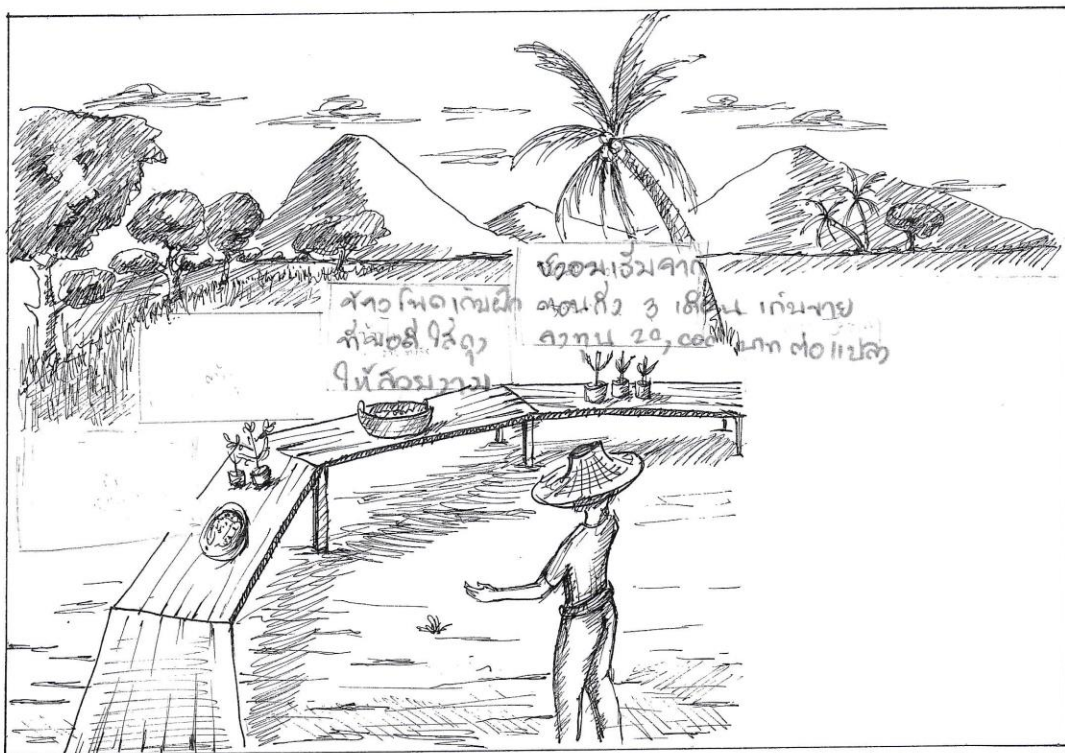 ข้าวโพดเก็บฝัก
ที่พอดี ใส่ถุง
ให้สวยงาม
ชะอมเริ่มจาก
ตอนกิ่ง 3 เดือน เก็บขาย
ลงทุน 20,000 บาท ต่อแปลง